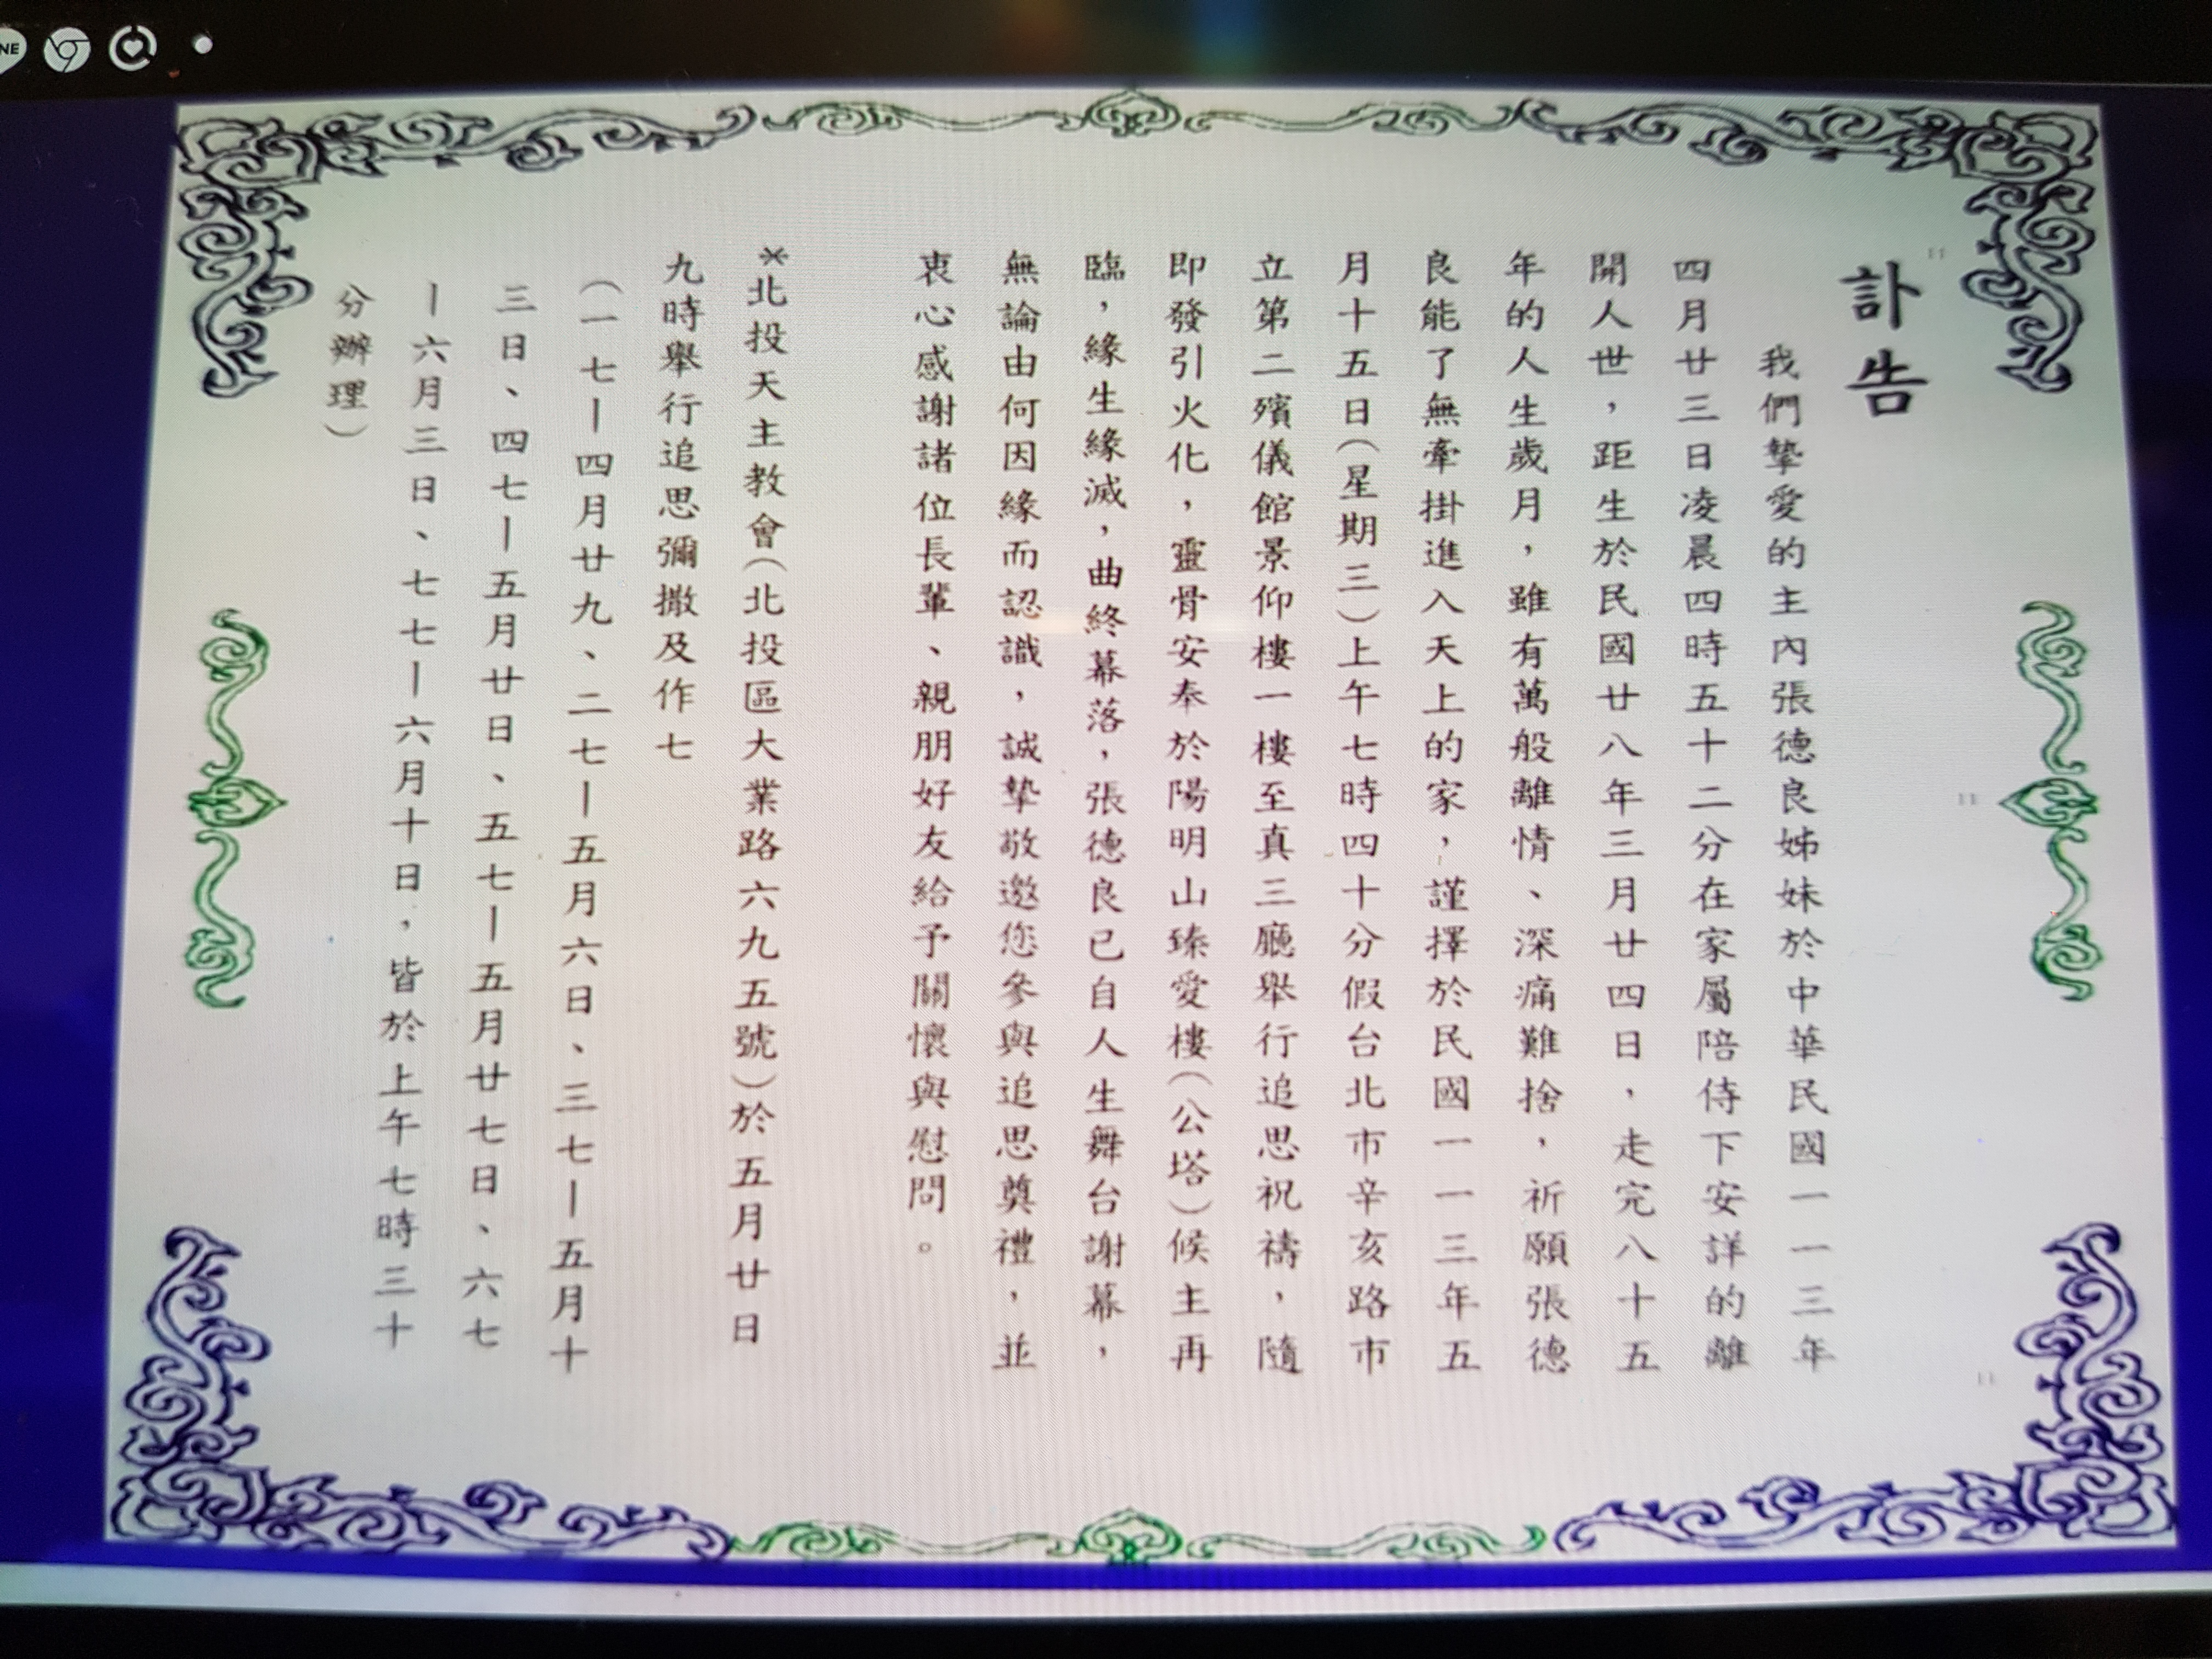 訃告
我們摯愛的主內張德良姊妹於中華民國一一三年
四月廿三日凌晨四時五十二分在家屬陪侍下安詳的離
開人世，距生於民國廿八年三月廿四日，走完八十五
年的人生歲月，雖有萬般離情、深痛難捨，祈願張德
良能了無牽掛進入天上的家，謹擇於民國一一三年五
月十五日（星期三）上午七時四十分假台北市辛亥路市
立第二殯儀館景仰樓一樓至真三廳舉行追思祝禱，隨
即發引火化，靈骨安奉於陽明山臻愛樓（公塔）候主再
臨，緣生緣滅，曲終幕落，張德良已自人生舞台謝幕，
無論由何因緣而認識，誠摯敬邀您參與追思奠禮，並
衷心感謝諸位長輩、親朋好友給予關懷與慰問。
*北投天主教會（北投區大業路六九五號）於五月廿日
九時舉行追思彌撒及作七
（一七－四月廿九、二七－五月六日、三七－五月十
三日、四七－五月廿日、五七－五月廿七日、六七
－六月三日、七七－六月十日，皆於上午七時三十
分辦理）